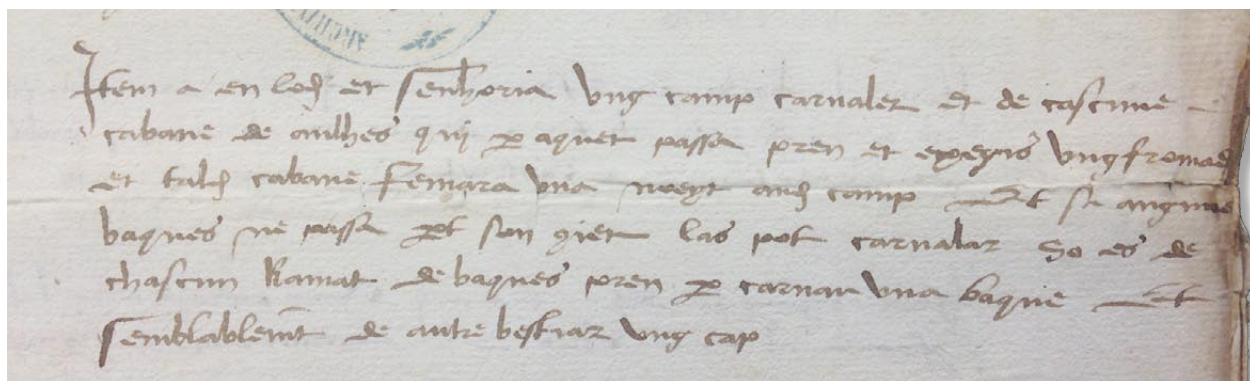 Item a en lod et senhoria ung camp carnaler et de cascune
cabane de oulhes qui per aquet passa pren et exeys ung fromad
et tald cabane femara una noeyt aud camp Et si augune
baques ne passa per son las pot carnalar So es de
chascun Ramat de baques pren per carnau una baque Et
semblablement de autre bestiar ung cap